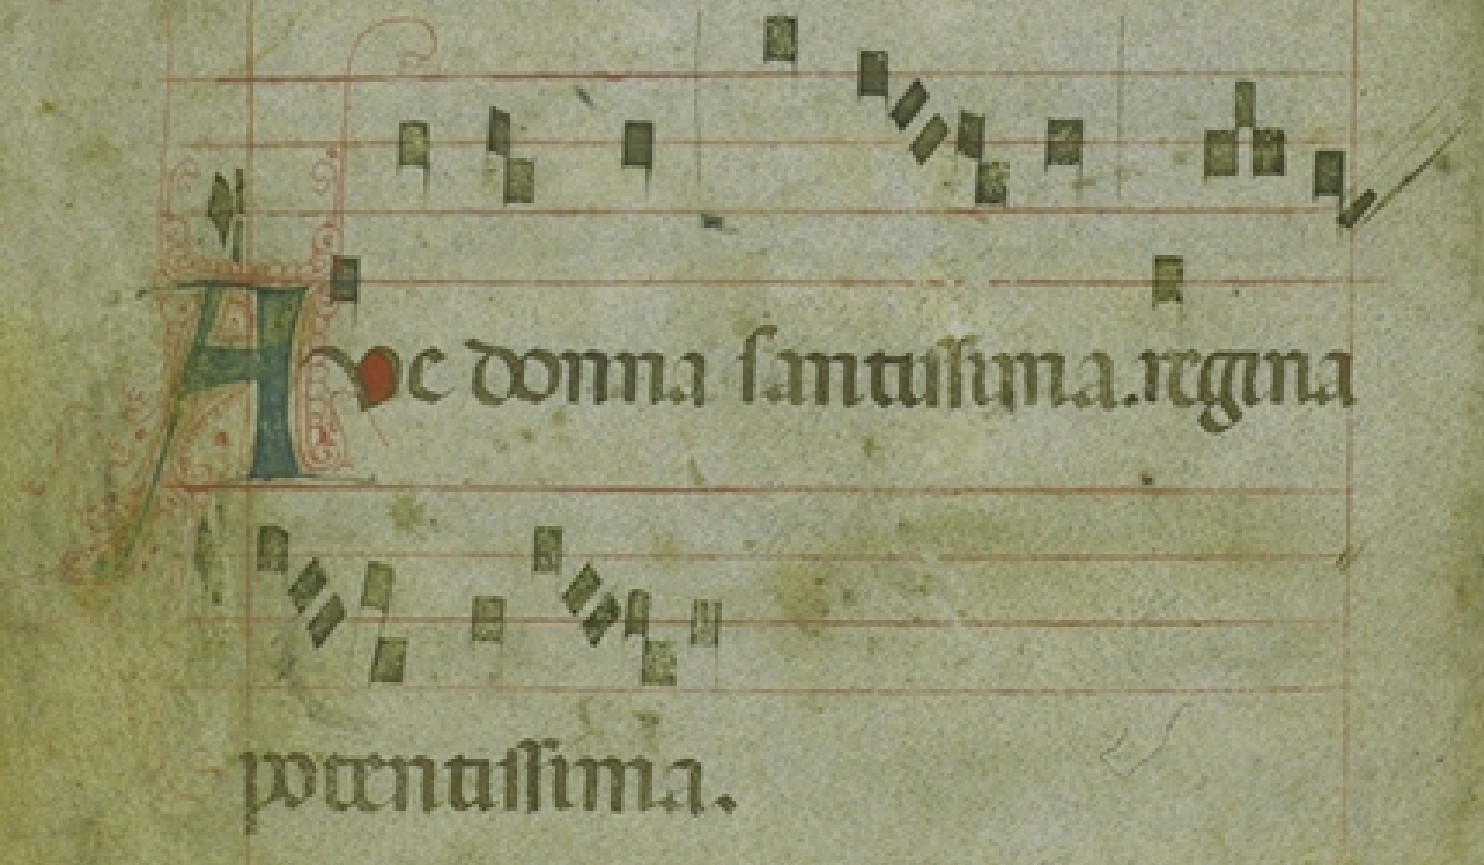 Ave donna santissima.regina
potentissima.